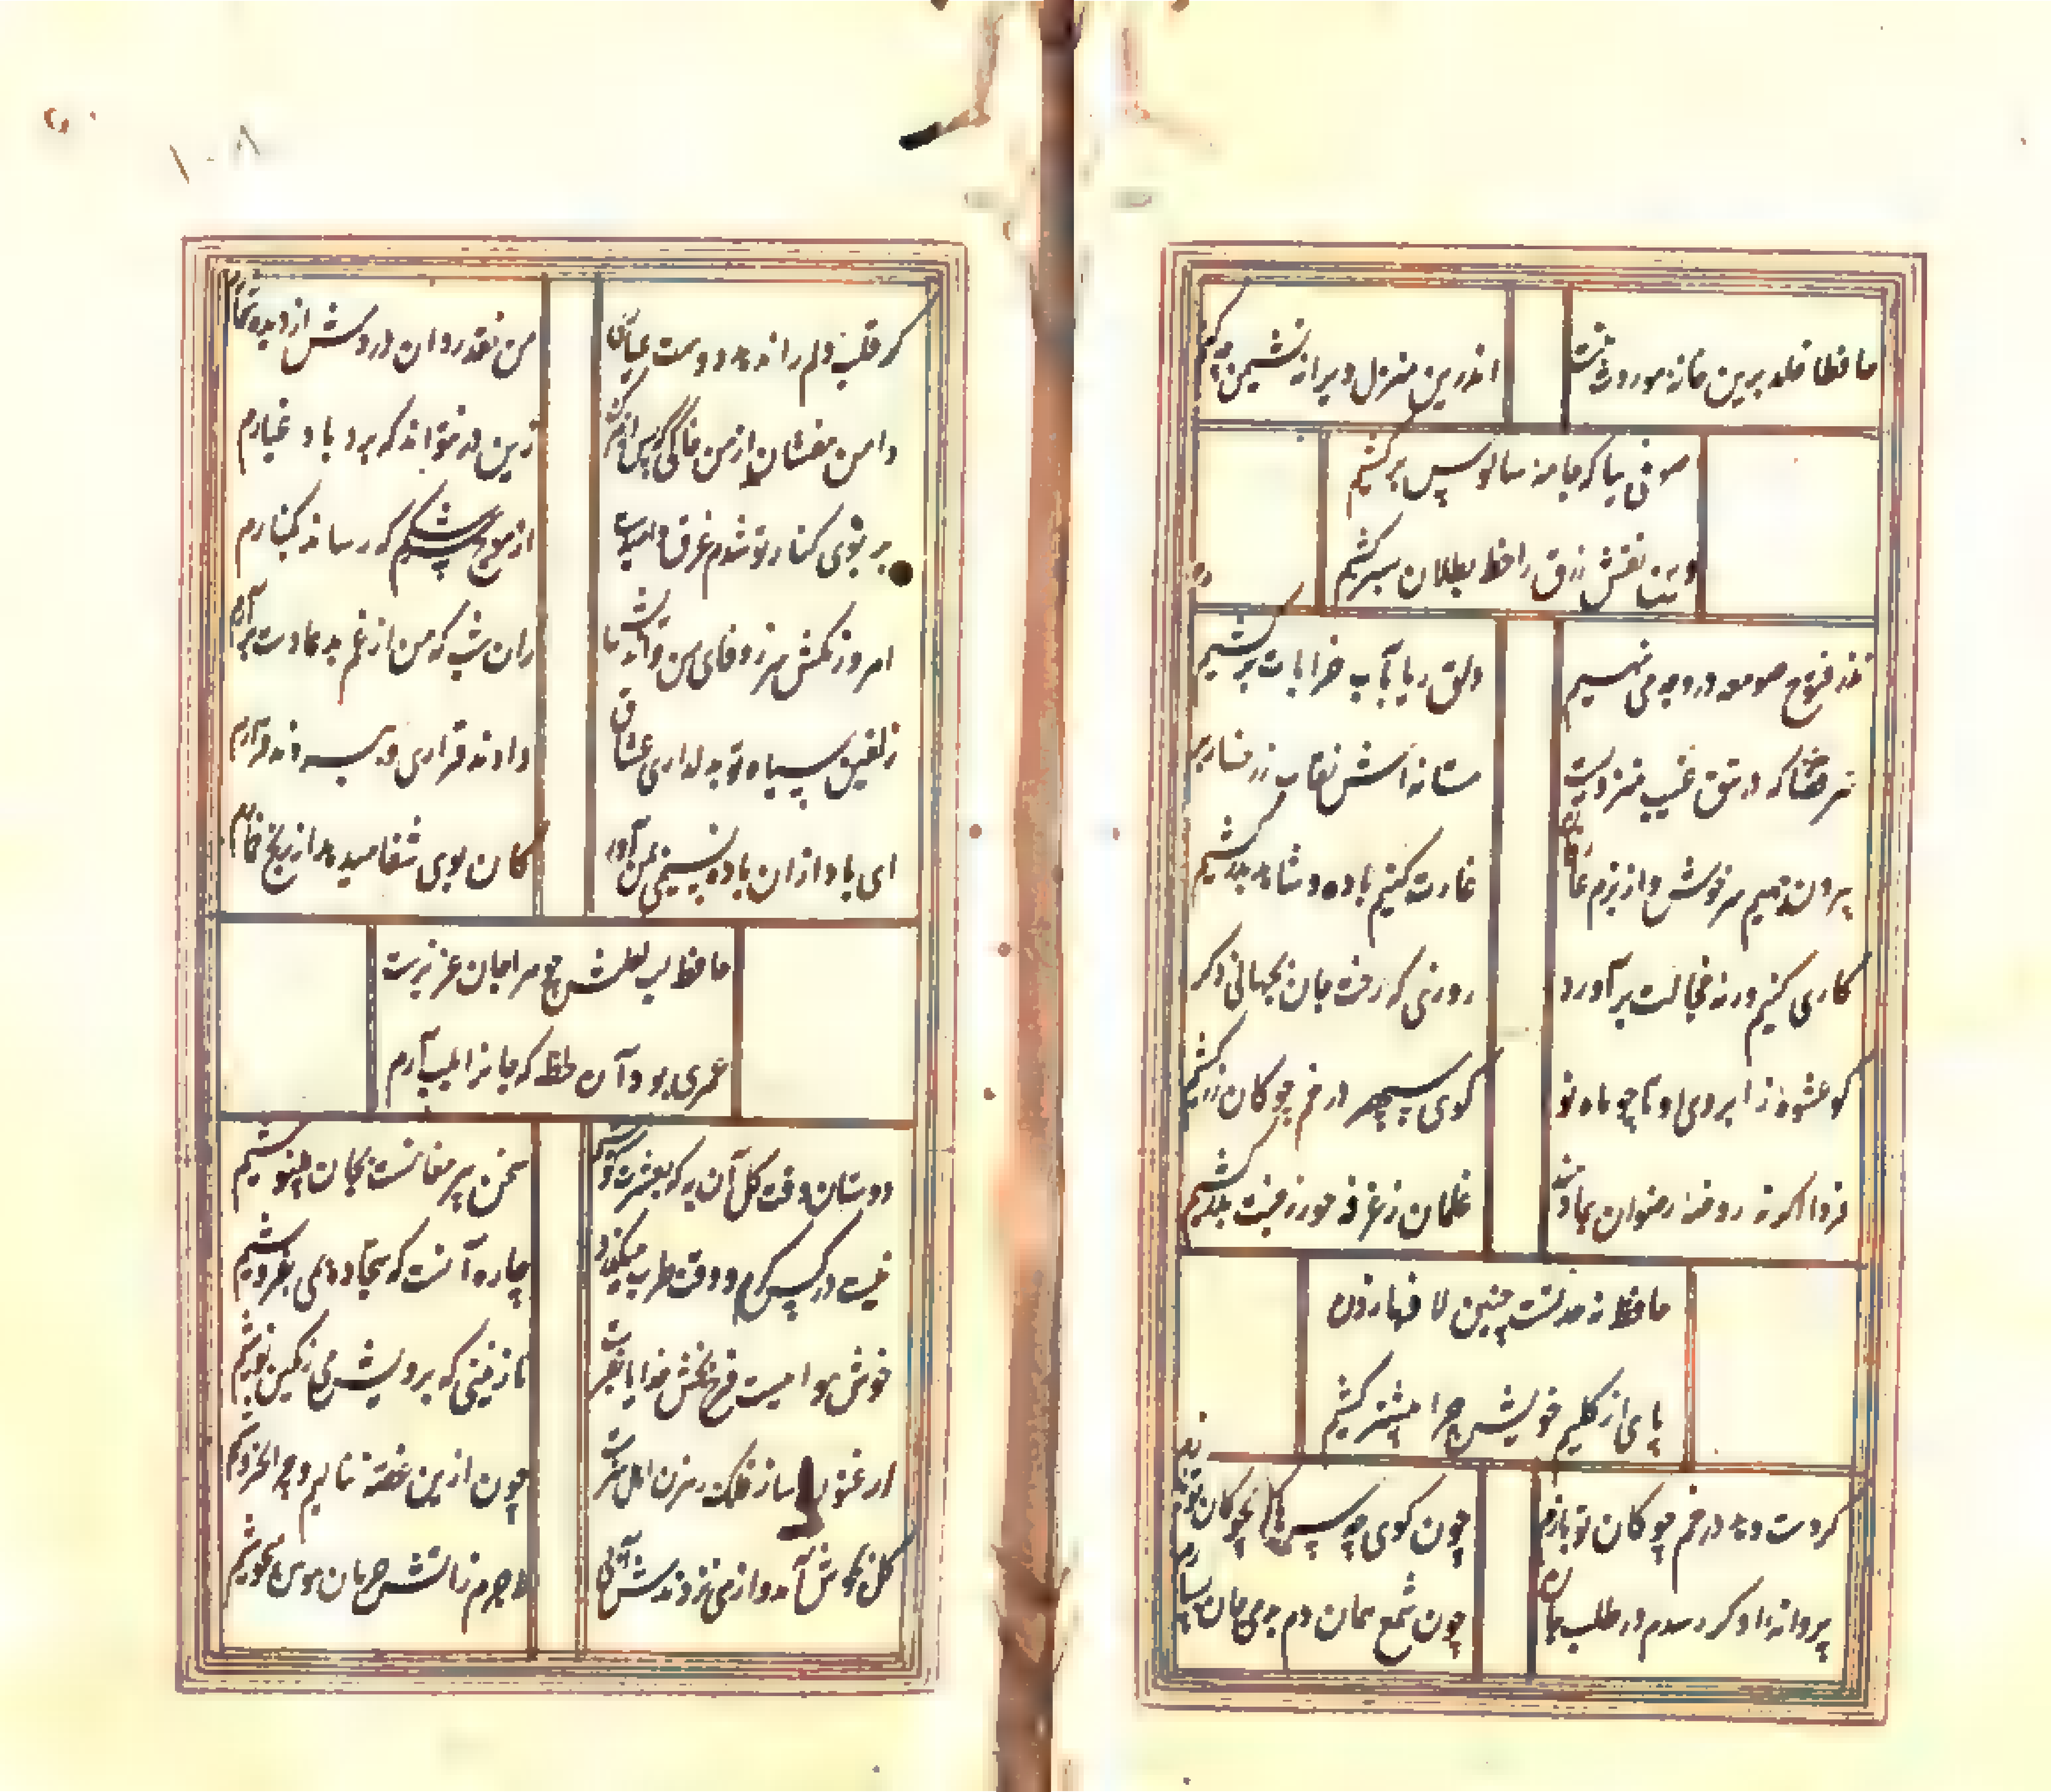 حافظا خلد برین خانه موروث منست
اندرین منزل ویرانه نشیمن چه کنم
صوفی بیا که جامه سالوس برکشیم
وین نقش زرق را خط بطلان بسر کشیم
نذر و فتوح صومعه در وجه می نهیم
دلق ریا بآب خرابات برکشیم
سر قضا که در تتق غیب منزویست
مستانه اش نقاب ز رخسار برکشیم
بیرون جهیم سرخوش و از بزم
غارت کنیم باده و شاهد ببر کشیم
کاری کنیم ورنه خجالت برآورد
روزی که رخت جان بجهانی دگر کشیم
کو عشوه ز ابروی او تا چو ماه نو
گوی سپهر در خم چوگان زر کشیم
فردا اگر نه روضه رضوان بما دهند
غلمان ز غرفه حور ز جنت بدر کشیم
حافظ نه حد تست چنین لافها زدن
پای از گلیم خویش چرا بیشتر کشیم
گر دست دهد در خم چوگان تو بازم
چون گوی چه سرها که بچوگان تو بازم
پروانه او گر رسدم در طلب جان
چون شمع همان دم بدمی جان بسپارم
گر قلب دلم را ننهد دوست عیاری
من نقد روان در دمش از دیده شمارم
دامن مفشان از من خاکی که پس از مرگ
زین در نتواند که برد باد غبارم
بر بوی کنار تو شدم غرق و امیدست
از موج سرشکم که رساند بکنارم
امروز مکش سر ز وفای من و اندیش
زان شب که من از غم بدعا دست برآرم
زلفین سیاه تو بدلداری عشاق
دادند قراری و ببردند قرارم
ای باد از آن باده نسیمی بمن آور
کان بوی شفا میدهد از رنج خمارم
حافظ لب لعلش چو مرا جان عزیزست
عمری بود آن لحظه که جان را بلب آرم
دوستان وقت گل آن به که بعشرت کوشیم
سخن پیر مغانست بجان بنیوشیم
نیست در کس کرم و وقت طرب میگذرد
چاره آنست که سجاده بمی بفروشیم
خوش هواییست فرح بخش خدایا بفرست
نازنینی که برویش می رنگین نوشیم
ارغنون ساز فلک رهزن اهل هنرست
چون ازین غصه ننالیم و چرا نخروشیم
گل بجوش آمد و از می نزدندش آبی
لاجرم ز آتش حرمان هوس بجوشیم
۱۰۸